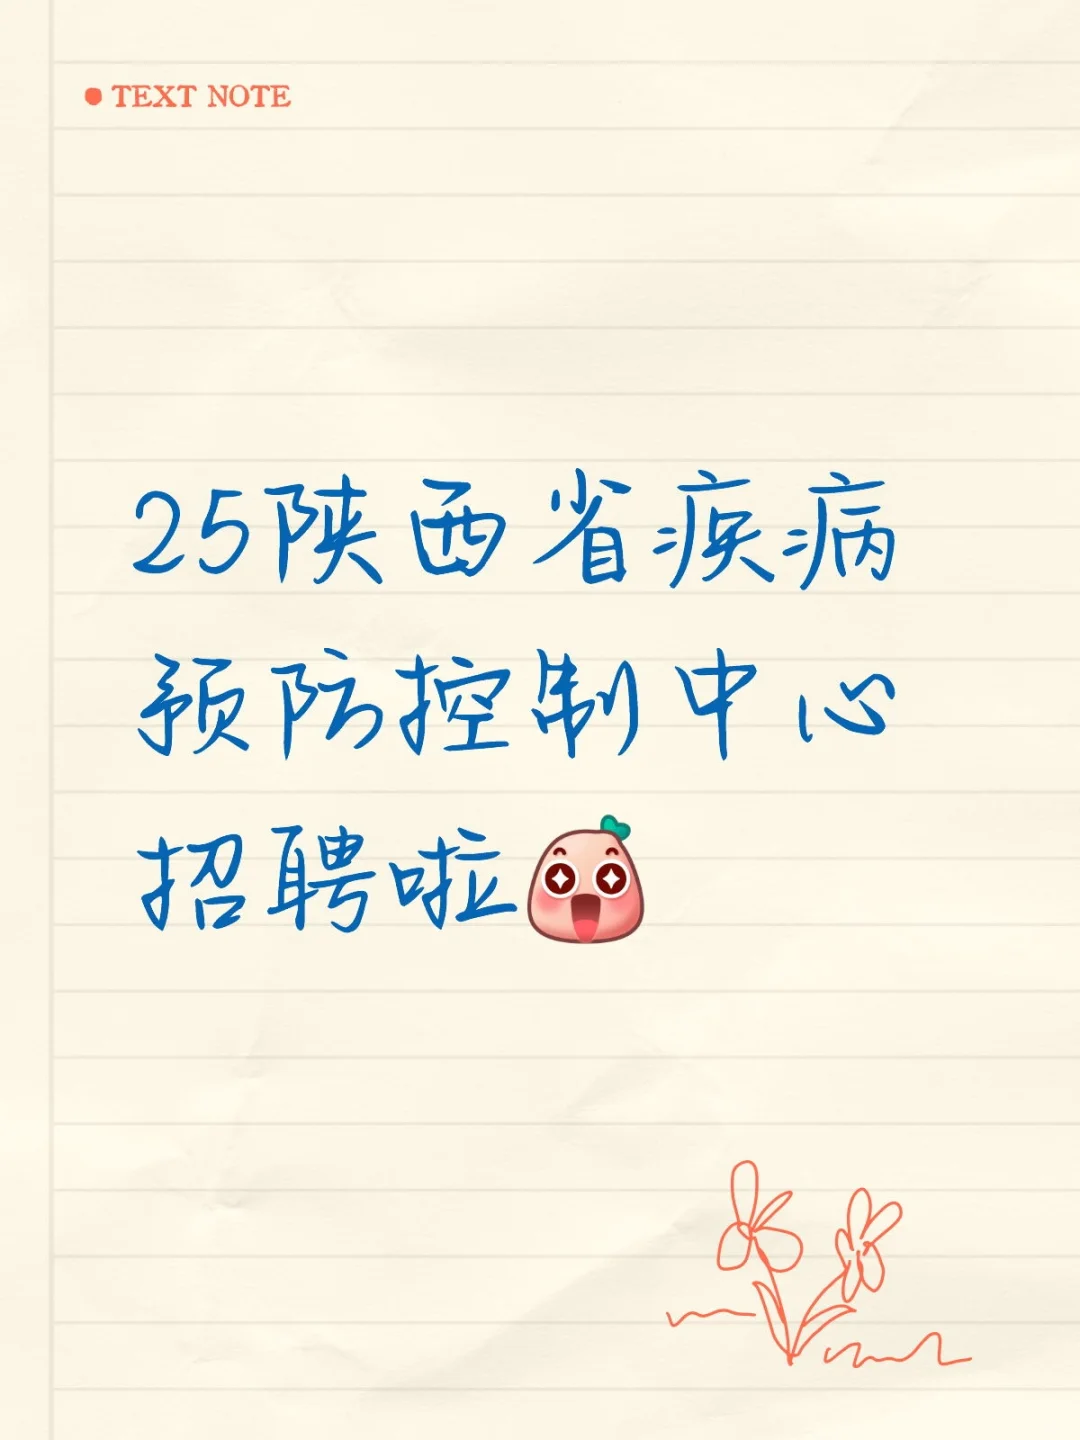 TEXT NOTE
25陕西省疾病
预防控制中心
招聘啦